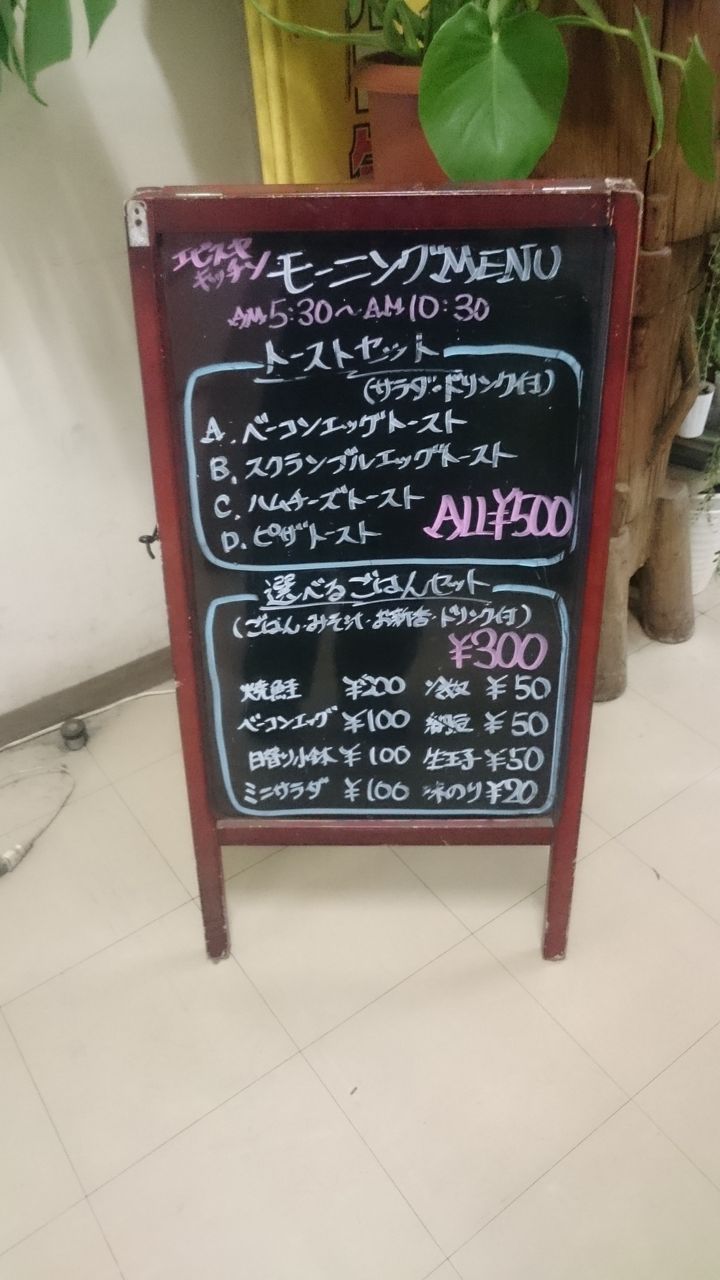 エビスヤキッチン モーニングMENU
AM5:30〜AM10:30
トーストセット
(サラダ・ドリンク付)
A.ベーコンエッグトースト
B.スクランブルエッグトースト
C.ハムチーズトースト
D.ピザトースト
ALL¥500
選べるごはんセット
(ごはん・みそ汁・お新香・ドリンク付)
¥300
焼鮭 ¥200 冷奴 ¥50
ベーコンエッグ ¥100 納豆 ¥50
日替り小鉢 ¥100 生玉子 ¥50
ミニサラダ ¥100 味のり ¥20